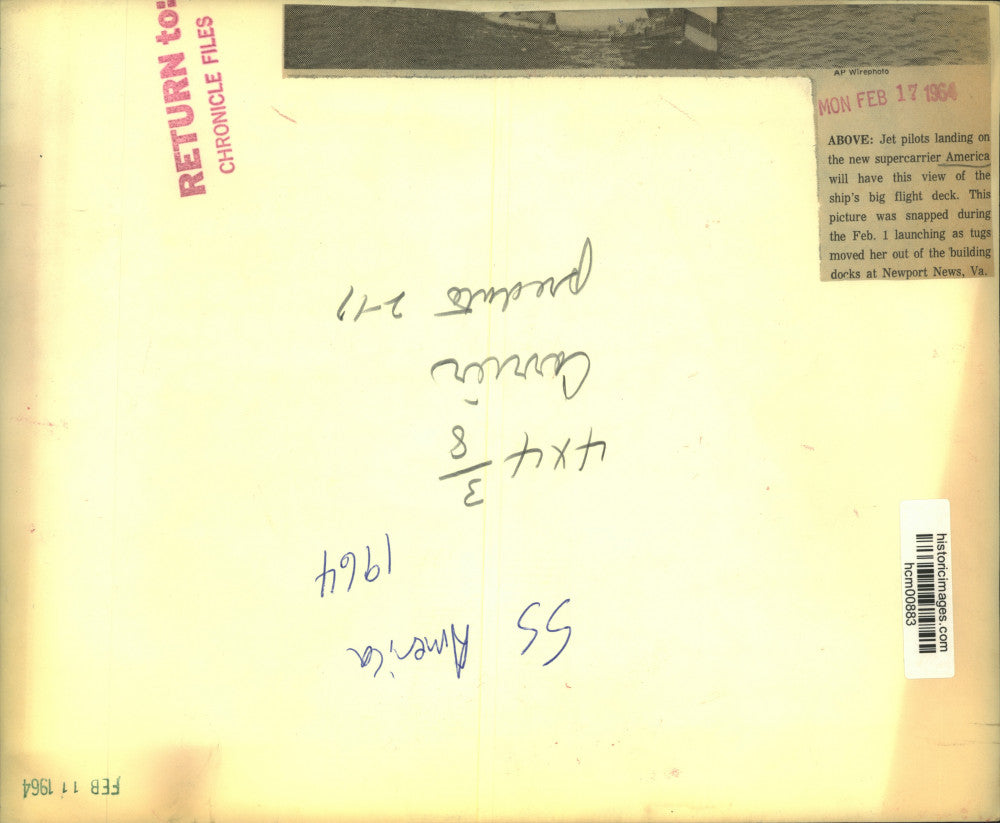 RETURN to:
CHRONICLE FILES
AP Wirephoto
MON FEB 17 1964
ABOVE: Jet pilots landing on
the new supercarrier America
will have this view of the
ship's big flight deck. This
picture was snapped during
the Feb. 1 launching as tugs
moved her out of the building
docks at Newport News, Va.
historicimages.com
hcm00883
FEB 11 1964
SS America
1964
4x4 3/8
Carrier
2-17